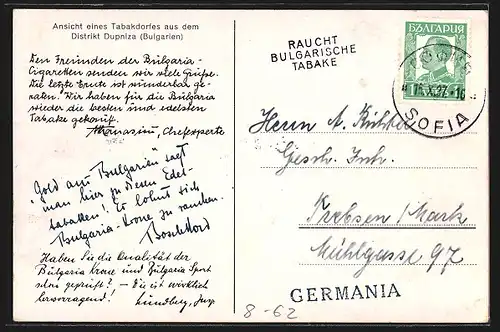 Ansicht eines Tabakdorfes aus dem
Distrikt Dupniza (Bulgarien)
Den Freunden der Bulgaria-
Cigaretten senden wir viele Grüße.
Die letzte Ernte ist wunderbar ge-
raten. Wir haben für die Bulgaria
wieder die besten und edelsten
Tabake gekauft.
Athanasiu, Chefexperte
"Gold aus Bulgarien" sagt
man hier zu diesen Edel-
tabaken! Es lohnt sich
Bulgaria-Krone zu rauchen.
Haben Sie die Qualität der
Bulgaria Krone und Bulgaria Sport
schon geprüft? - die ist wirklich
hervorragend!
Lundberg, Insp.
RAUCHT
BULGARISCHE
TABAKE
БЪЛГАРИЯ
X.37.-16
SOFIA
Herrn A. Richter
Gesch. Inh.
Trebsen/Mark
Mühlgasse 97
GERMANIA
8-62